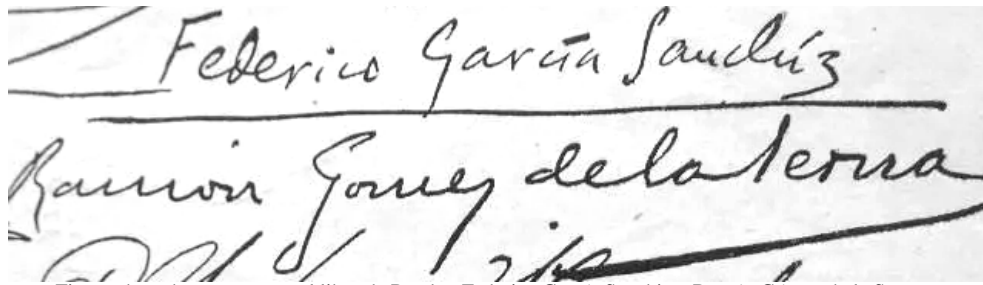 Federico García Sanchíz
Ramón Gomez de la Serna